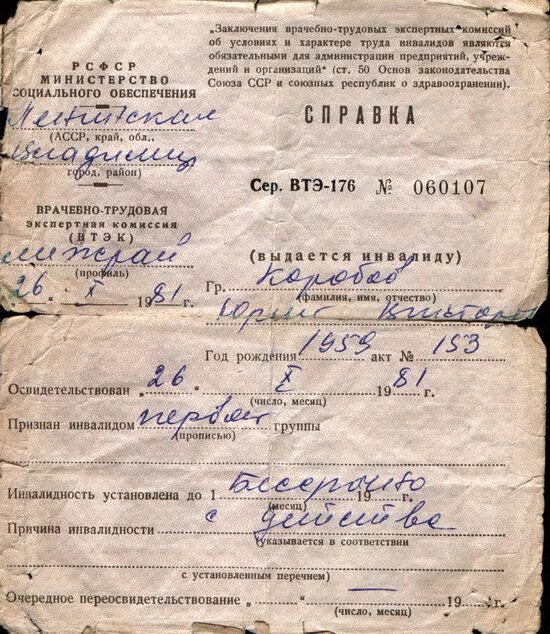 „Заключения врачебно-трудовых экспертных комиссий
об условиях и характере труда инвалидов являются
обязательными для администрации предприятий, учреж-
дений и организаций" (ст. 50 Основ законодательства
Союза ССР и союзных республик о здравоохранении).
РСФСР
МИНИСТЕРСТВО
СОЦИАЛЬНОГО ОБЕСПЕЧЕНИЯ
(АССР, край, обл.,
Владимир
город, район)
ВРАЧЕБНО-ТРУДОВАЯ
экспертная комиссия
(ВТЭК)
межрай
(профиль)
26 „ X 1981 г.
СПРАВКА
Сер. ВТЭ-176 № 060107
(выдается инвалиду)
Гр. Коробов
(фамилия, имя, отчество)
Юрий Виктор
Год рождения 1959 акт № 153
Освидетельствован „26 " X 1981 г.
(число, месяц)
Признан инвалидом первой группы
(прописью)
Инвалидность установлена до 1 Бессрочно 19 г.
(месяц)
Причина инвалидности с детства
(указывается в соответствии
с установленным перечнем)
Очередное переосвидетельствование „ " — 19 г.
(число, месяц)